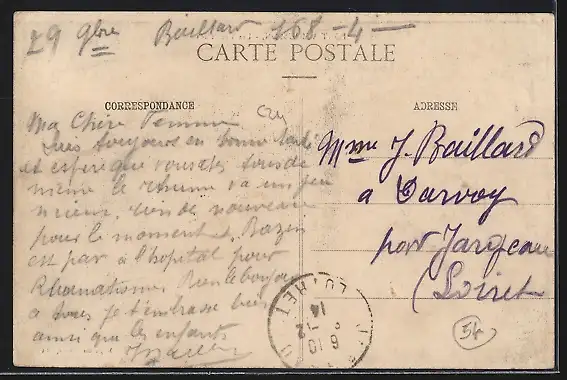 29 9bre Baillard 168 - 4 -
CARTE POSTALE
CORRESPONDANCE
ADRESSE
Ma Chère Femme
Suis toujours en bonne santé
et espère que vous etes tous de
même le rhume va un peu
mieux, rien de nouveau
pour le moment, Bazin
est par à l'hopital pour
Rhumatismes Bien le bonjour
à tous je t'embrasse bien
ainsi que les enfants
J Baillard
Mme J. Baillard
a Darvoy
par Jargeau
(Loiret
54